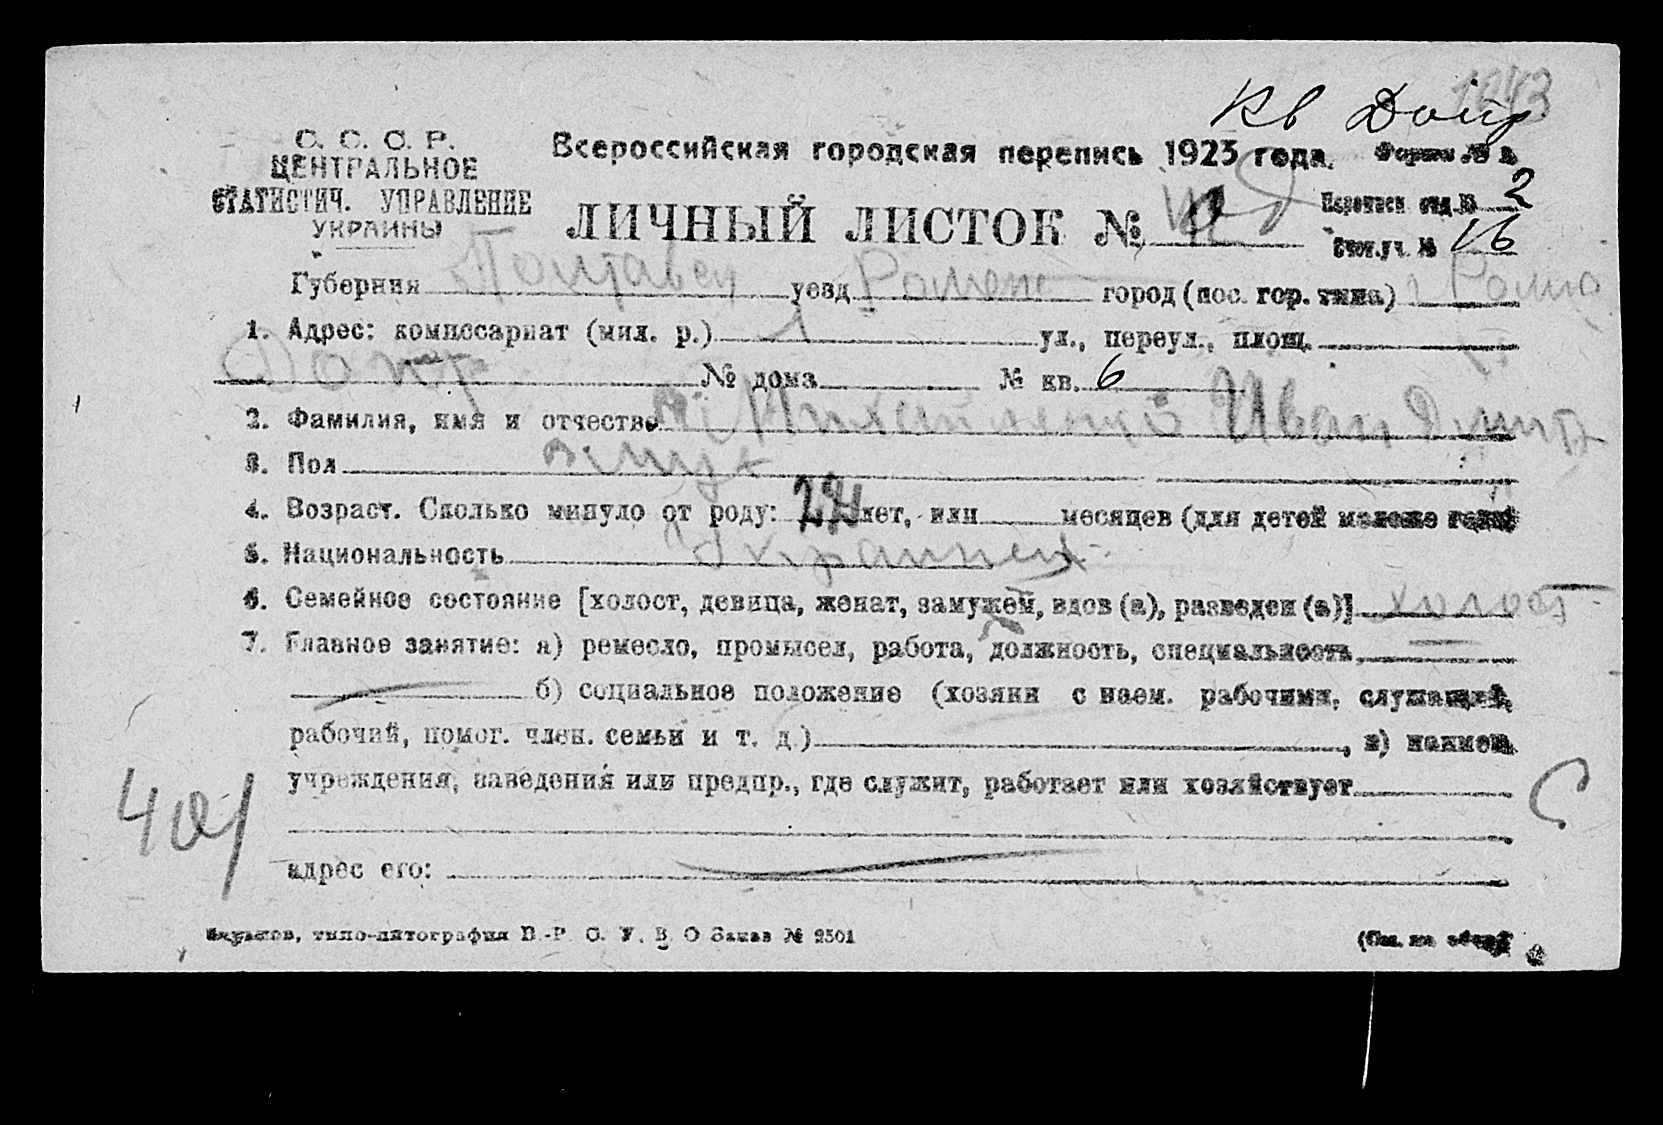 1043
Кв Допр
С. С. С. Р.
ЦЕНТРАЛЬНОЕ
СТАТИСТИЧ. УПРАВЛЕНИЕ
УКРАИНЫ
Всероссийская городская перепись 1923 года. Форма №
Переписн отд. № 2
ЛИЧНЫЙ ЛИСТОК №
Счет. уч. № 16
Губерния Полтавск уезд Роменс город (пос. гор. типа)
1. Адрес: комиссариат (мил. р.) 1 ул., переул., площ.
Допр № дома № кв. 6
2. Фамилия, имя и отчество Иван Дмит
3. Пол муж
4. Возраст. Сколько минуло от роду: 24 лет, или месяцев (для детей моложе года)
5. Национальность Украинец
6. Семейное состояние [холост, девица, женат, замужем, вдов (а), разведен (а)] холост
7. Главное занятие: а) ремесло, промысел, работа, должность, специальность
б) социальное положение (хозяин с наем. рабочими, служащий,
рабочий, помог. член. семьи и т. д.) , в) наимен.
учреждения, заведения или предпр., где служит, работает или хозяйствует
адрес его:
40
Харьков, типо-литография В.-Р. С. У. В. О Заказ № 2501
(См. на обор.